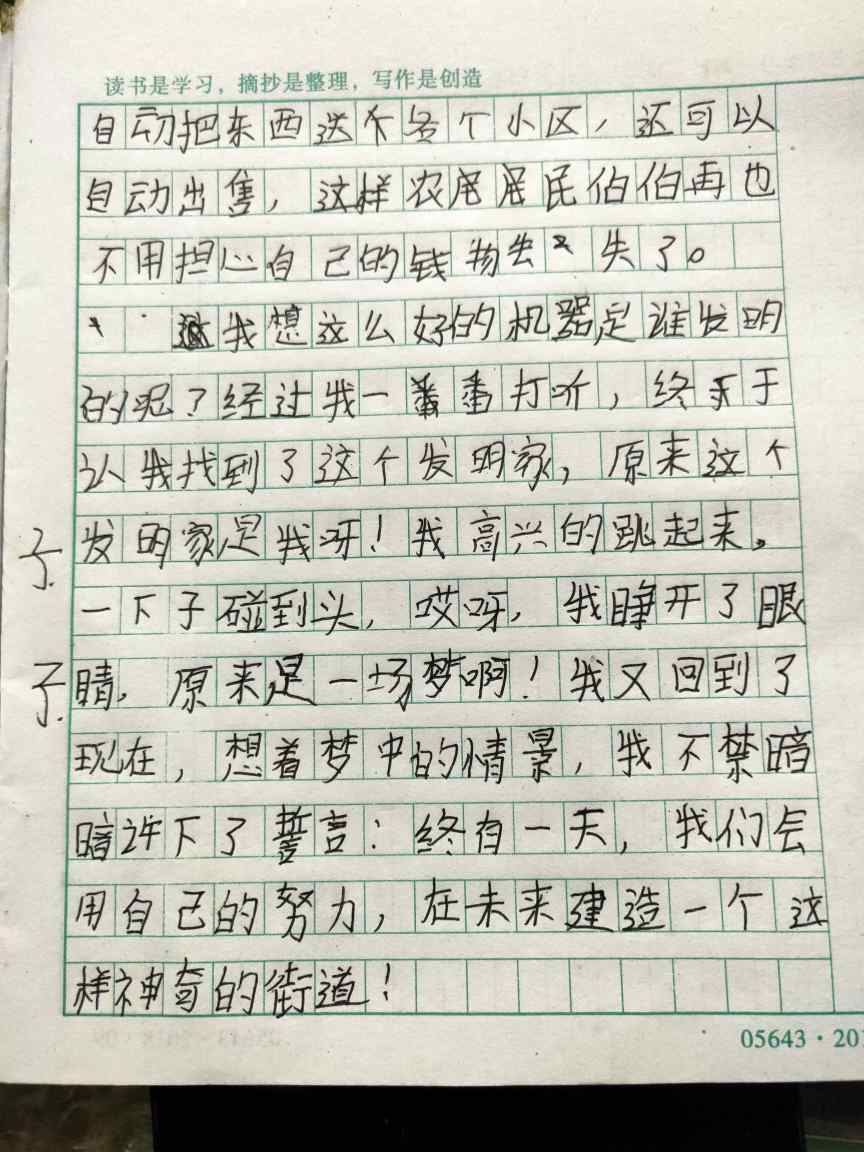 读书是学习，摘抄是整理，写作是创造
自动把东西送个各个小区，还可以
自动出售，这样农居居民伯伯再也
不用担心自己的钱物去失了。
我想这么好的机器是谁发明
的呢？经过我一番番打听，终于于
认我找到了这个发明家，原来这个
发明家是我呀！我高兴的跳起来。
一下子碰到头，哎呀，我睁开了眼
睛，原来是一场梦啊！我又回到了
现在，想着梦中的情景，我不禁暗
暗许下了誓言：终有一天，我们会
用自己的努力，在未来建造一个这
样神奇的街道！
05643·201